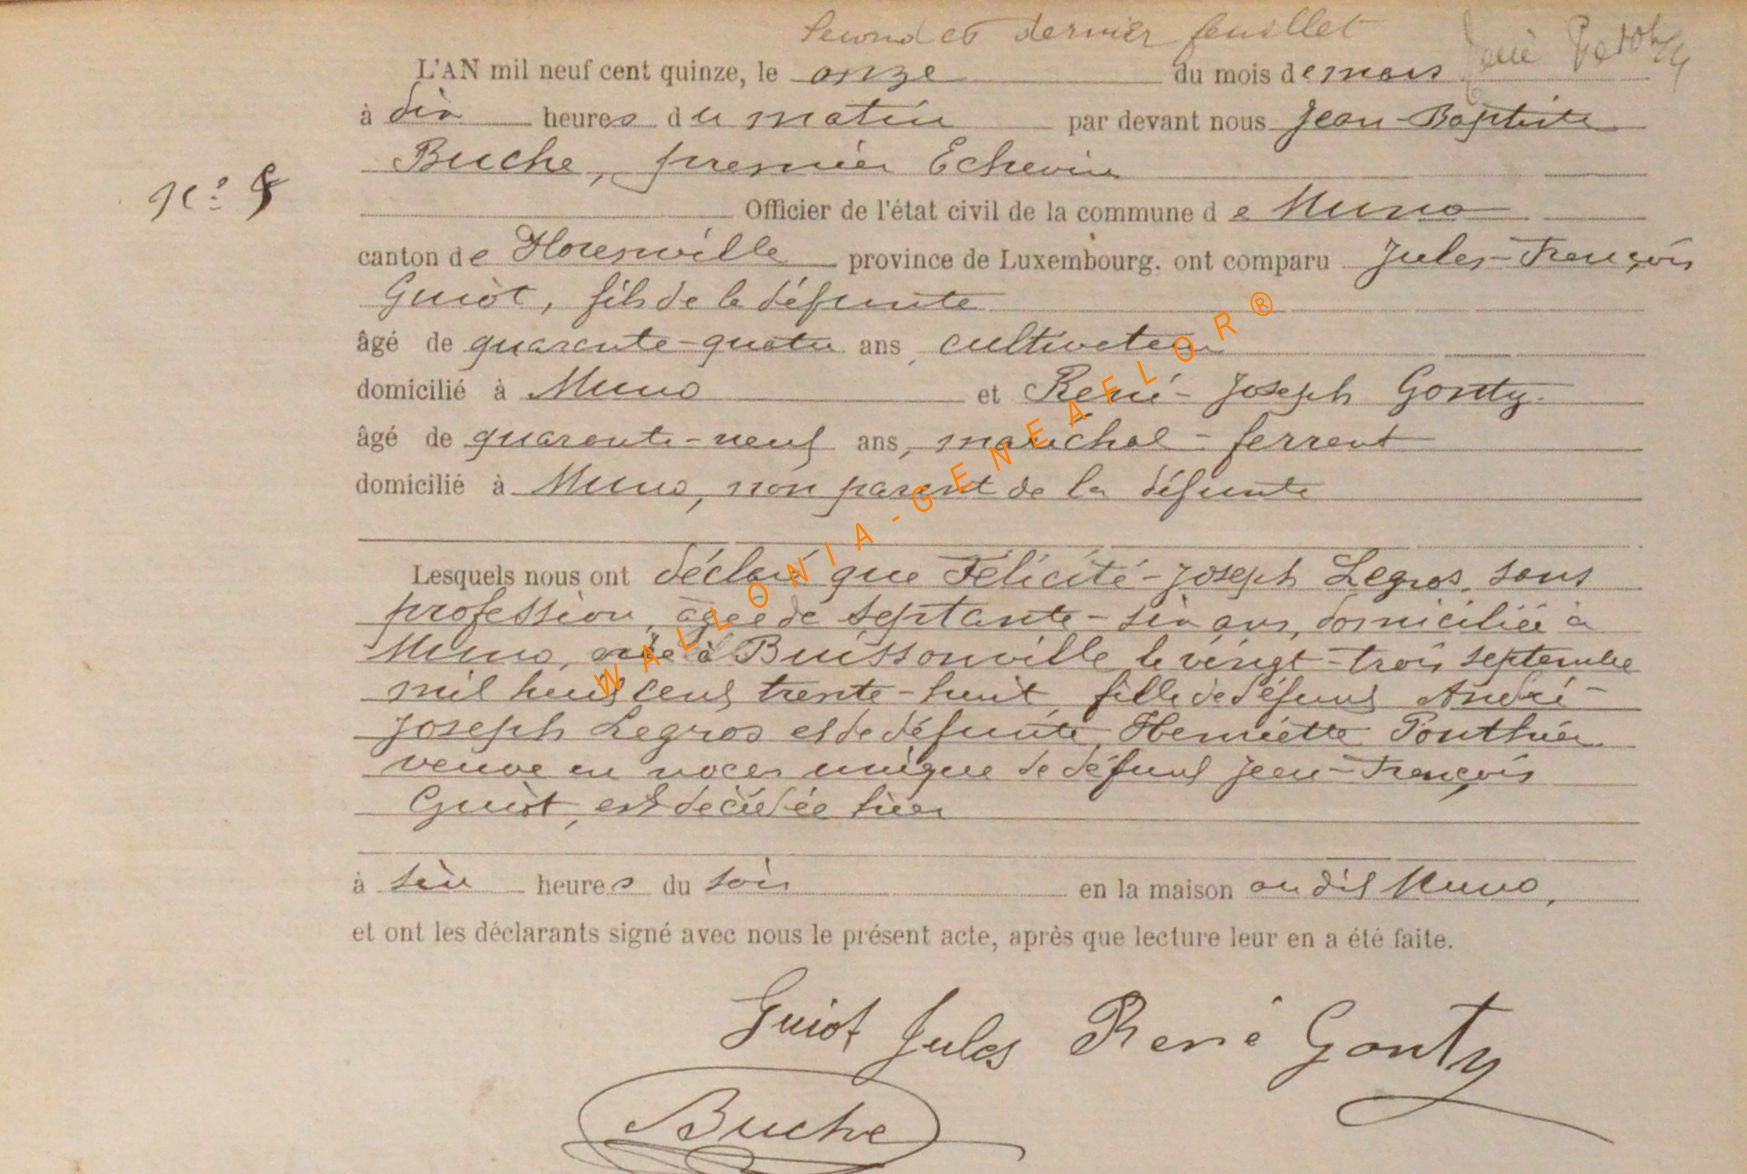 Second et dernier feuillet
L'AN mil neuf cent quinze, le onze du mois de mars
à dix heures du matin par devant nous Jean-Baptiste
Buche, premier Echevin
N°: 5
Officier de l'état civil de la commune de Muno
canton de Florenville province de Luxembourg. ont comparu Jules-François
Guiot, fils de la défunte
âgé de quarante-quatre ans, cultivateur
domicilié à Muno et René-Joseph Gonty
âgé de quarante-neuf ans, maréchal-ferrant
domicilié à Muno, non parent de la défunte
Lesquels nous ont déclaré que Félicité-Joseph Legros, sans
profession, âgée de septante-six ans, domiciliée à
Muno, née à Buissonville le vingt-trois septembre
mil huit cent trente-huit, fille de défunt André-
Joseph Legros et de défunte Henriette Ponthier
veuve en noces unique de défunt Jean-François
Guiot, est décédée hier
à six heures du soir en la maison au dit Muno,
et ont les déclarants signé avec nous le présent acte, après que lecture leur en a été faite.
Guiot Jules René Gonty
Buche
WALLONIA-GENEAFLOR®